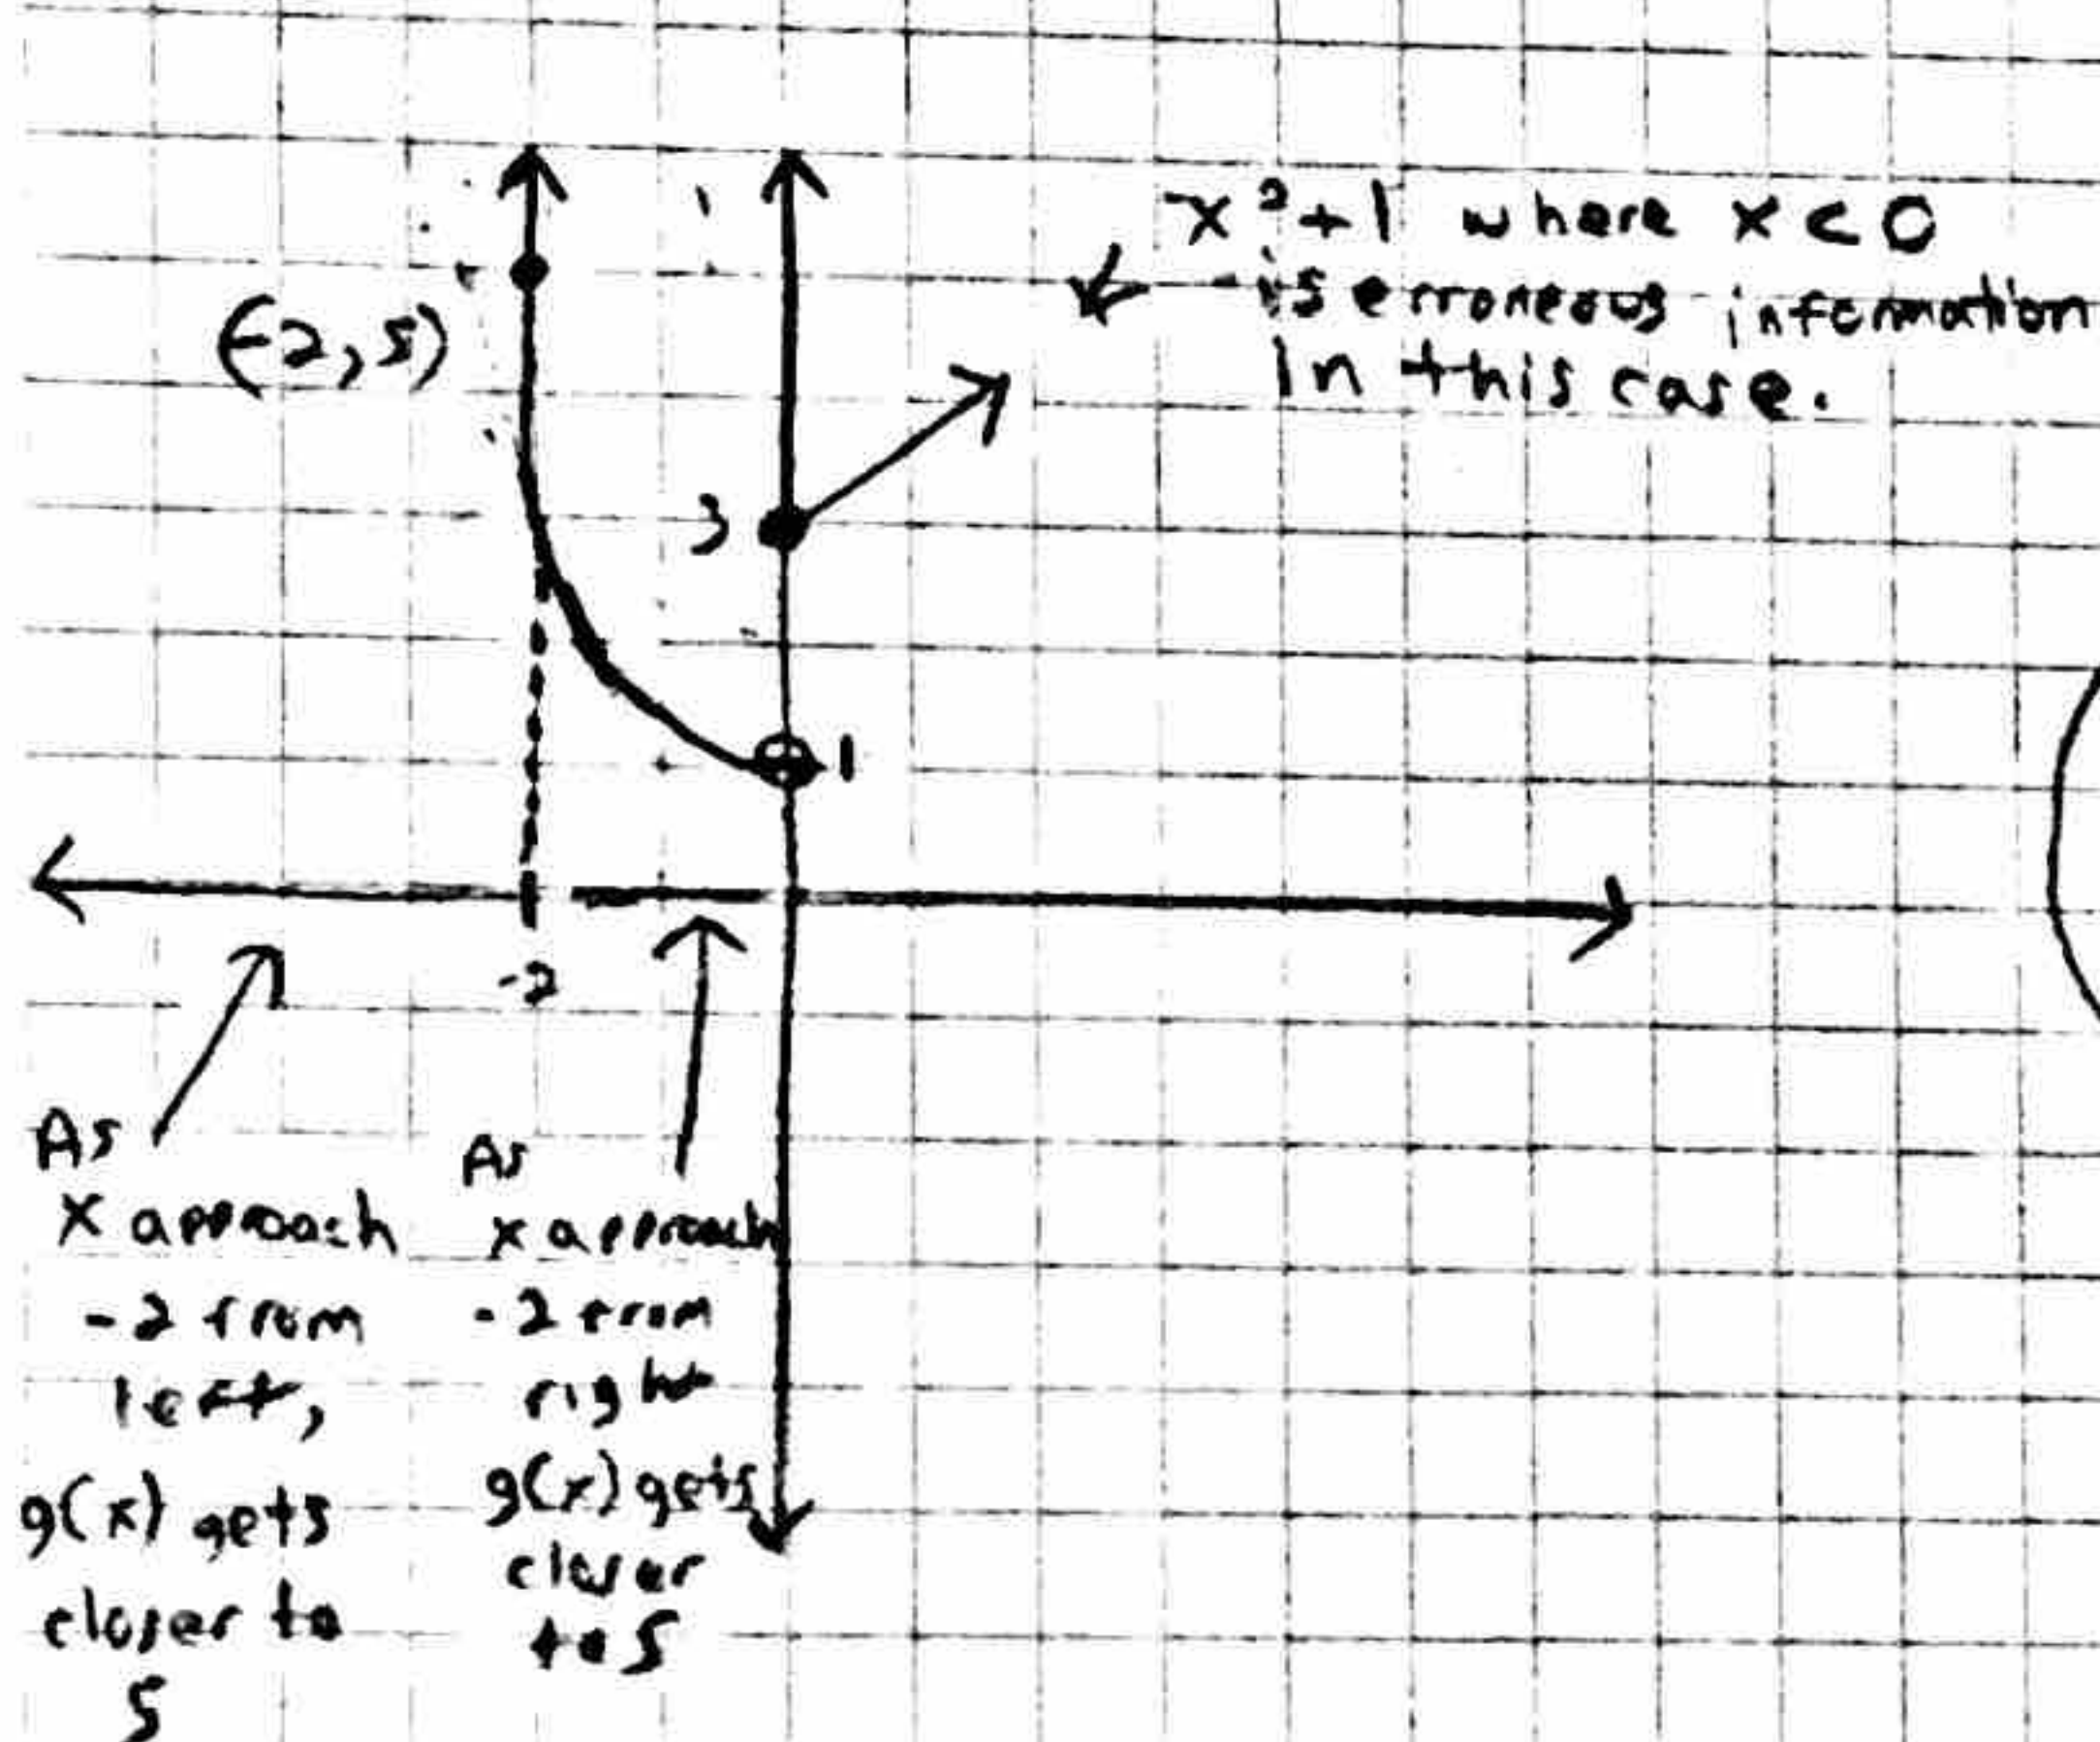 x²+1 where x<0
is erroneous information
in this case.
(-2,5)
3
1
-2
As
x approach
-2 from
left,
g(x) gets
closer to
5
As
x approach
-2 from
right
g(x) gets
closer
to 5